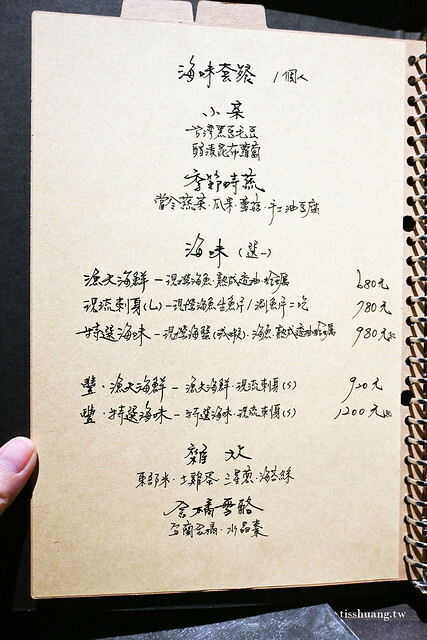 海味套路 1個人
小菜
台灣黑豆毛豆
醋漬昆布蘿蔔
季節時蔬
當令蔬菜·瓜果·蕈菇·手工油豆腐
海味(選一)
漁夫海鮮－現撈海魚·熟成透抽·蛤蠣 680元
現流刺身(L)－現撈海魚生魚片/涮魚片二吃 780元
特選海味－現撈海蟹(或蝦)·海魚·熟成透抽蛤蠣 980元起
豐·漁夫海鮮－漁夫海鮮·現流刺身(S) 920元
豐·特選海味－特選海味·現流刺身(S) 1200元起
雜炊
東部米·土雞蛋·三星蔥·海苔絲
金橘雪酪
宜蘭金橘·水晶棗
tisshuang.tw